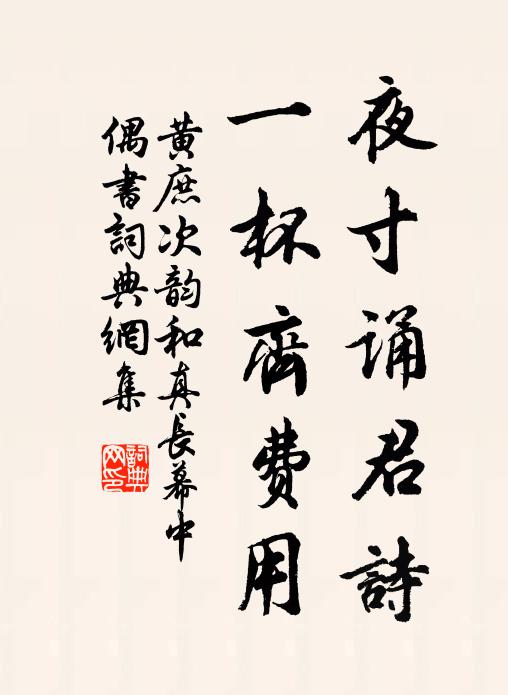 夜寸诵君詩
一杯齋費用
黄庶次韵和真長幕中
偶書詞典網集
詞典網印